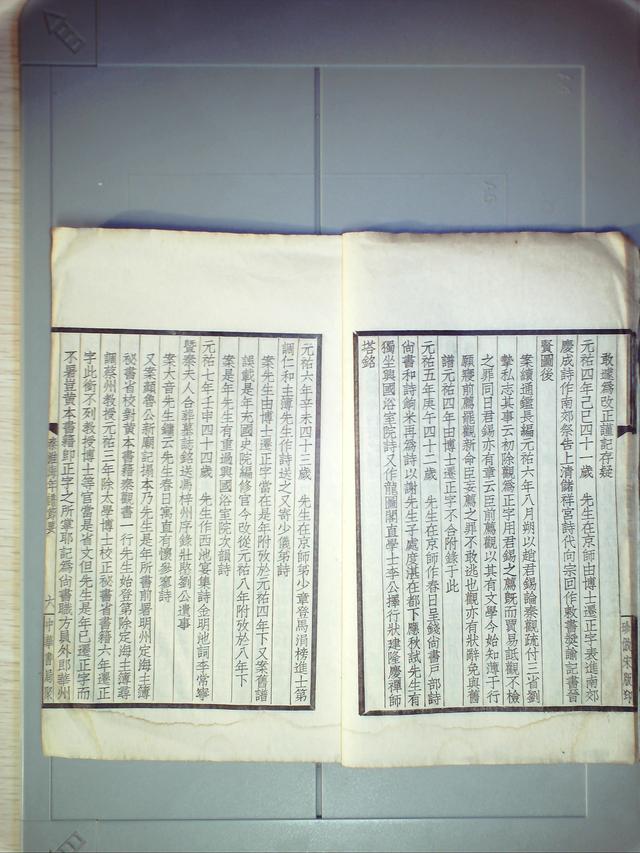 敢遽爲改正謹記存疑
元祐四年己巳四十一歲　先生在京師由博士遷正字表進南郊
慶成詩作南郊祭告上清儲祥宮詩代向宗回作敕書獎諭記書晉
賢圖後
案續通鑑長編元祐六年八月朔以趙君錫論秦觀疏付三省劉
摯私志其事云初除觀爲正字用君錫之薦旣而賈易詆觀不檢
之罪同日君錫亦有章云臣前薦觀以其有文學今始知薄于行
願寢前薦罷觀新命臣妄薦之罪不敢逃也觀亦有狀辭免與舊
譜元祐四年由博士遷正字不合附錄于此
元祐五年庚午四十二歲　先生在京師作春日呈錢尙書戶部詩
尙書和詩餉米再爲詩以謝先生子處度湛在都下應秋試先生有
獨坐興國浴室院詩又作龍圖閣直學士李公擇行狀建隆慶禪師
塔銘
元祐六年辛未四十三歲　先生在京師弟少章登馬涓榜進士第
調仁和主簿先生作詩送之又寄少儀弟詩
案先生由博士遷正字當在是年附攷於元祐四年下又案舊譜
誤載是年充國史院編修官今改從元祐八年附攷於八年下
案是年先生有重過興國浴室院次韻詩
元祐七年壬申四十四歲　先生作西池宴集詩金明池詞李常寧
曁秦夫人合葬墓誌銘送馮梓州序錄壯愍劉公遺事
案大音先生鏞云先生春日寓直有懷參寥詩
又案顏魯公新廟記搨本乃先生是年所書前署明州定海主簿
祕書省校對黃本書籍秦觀書一行先生始登第除定海主簿尋
調蔡州教授元祐三年除太學博士校正祕書省書籍六年遷正
字此銜不列教授博士等官當是省文但先生是年已遷正字而
不署豈黃本書籍卽正字之所掌耶記爲尙書職方員外郎
六
中華書局聚